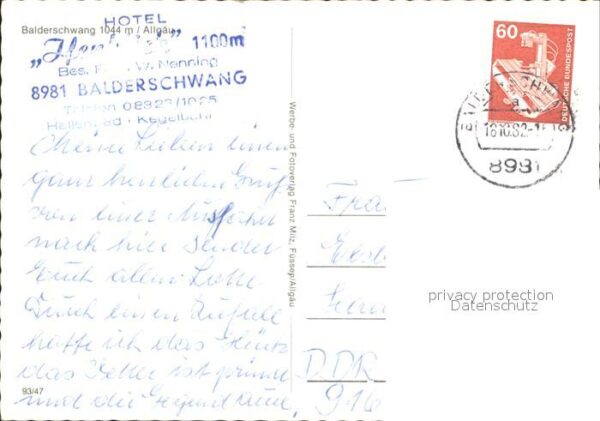 Balderschwang 1044 m / Allgäu
HOTEL
1100m
Bes. W. Nenning
8981 BALDERSCHWANG
Telefon 08328/1025
Hallenbad - Kegelbahn
Meine Lieben einen
ganz herzlichen Gruß
von einer
nach hier sendet
Euch allen Lotte
Durch einen Zufall
hatte ich das Glück
das Wetter ist prima
und die Gegend
93/47
Werbe- und Fotoverlag Franz Milz, Füssen/Allgäu
60
DEUTSCHE BUNDESPOST
18.10.82
8981
Frau
DDR
916
privacy protection
Datenschutz